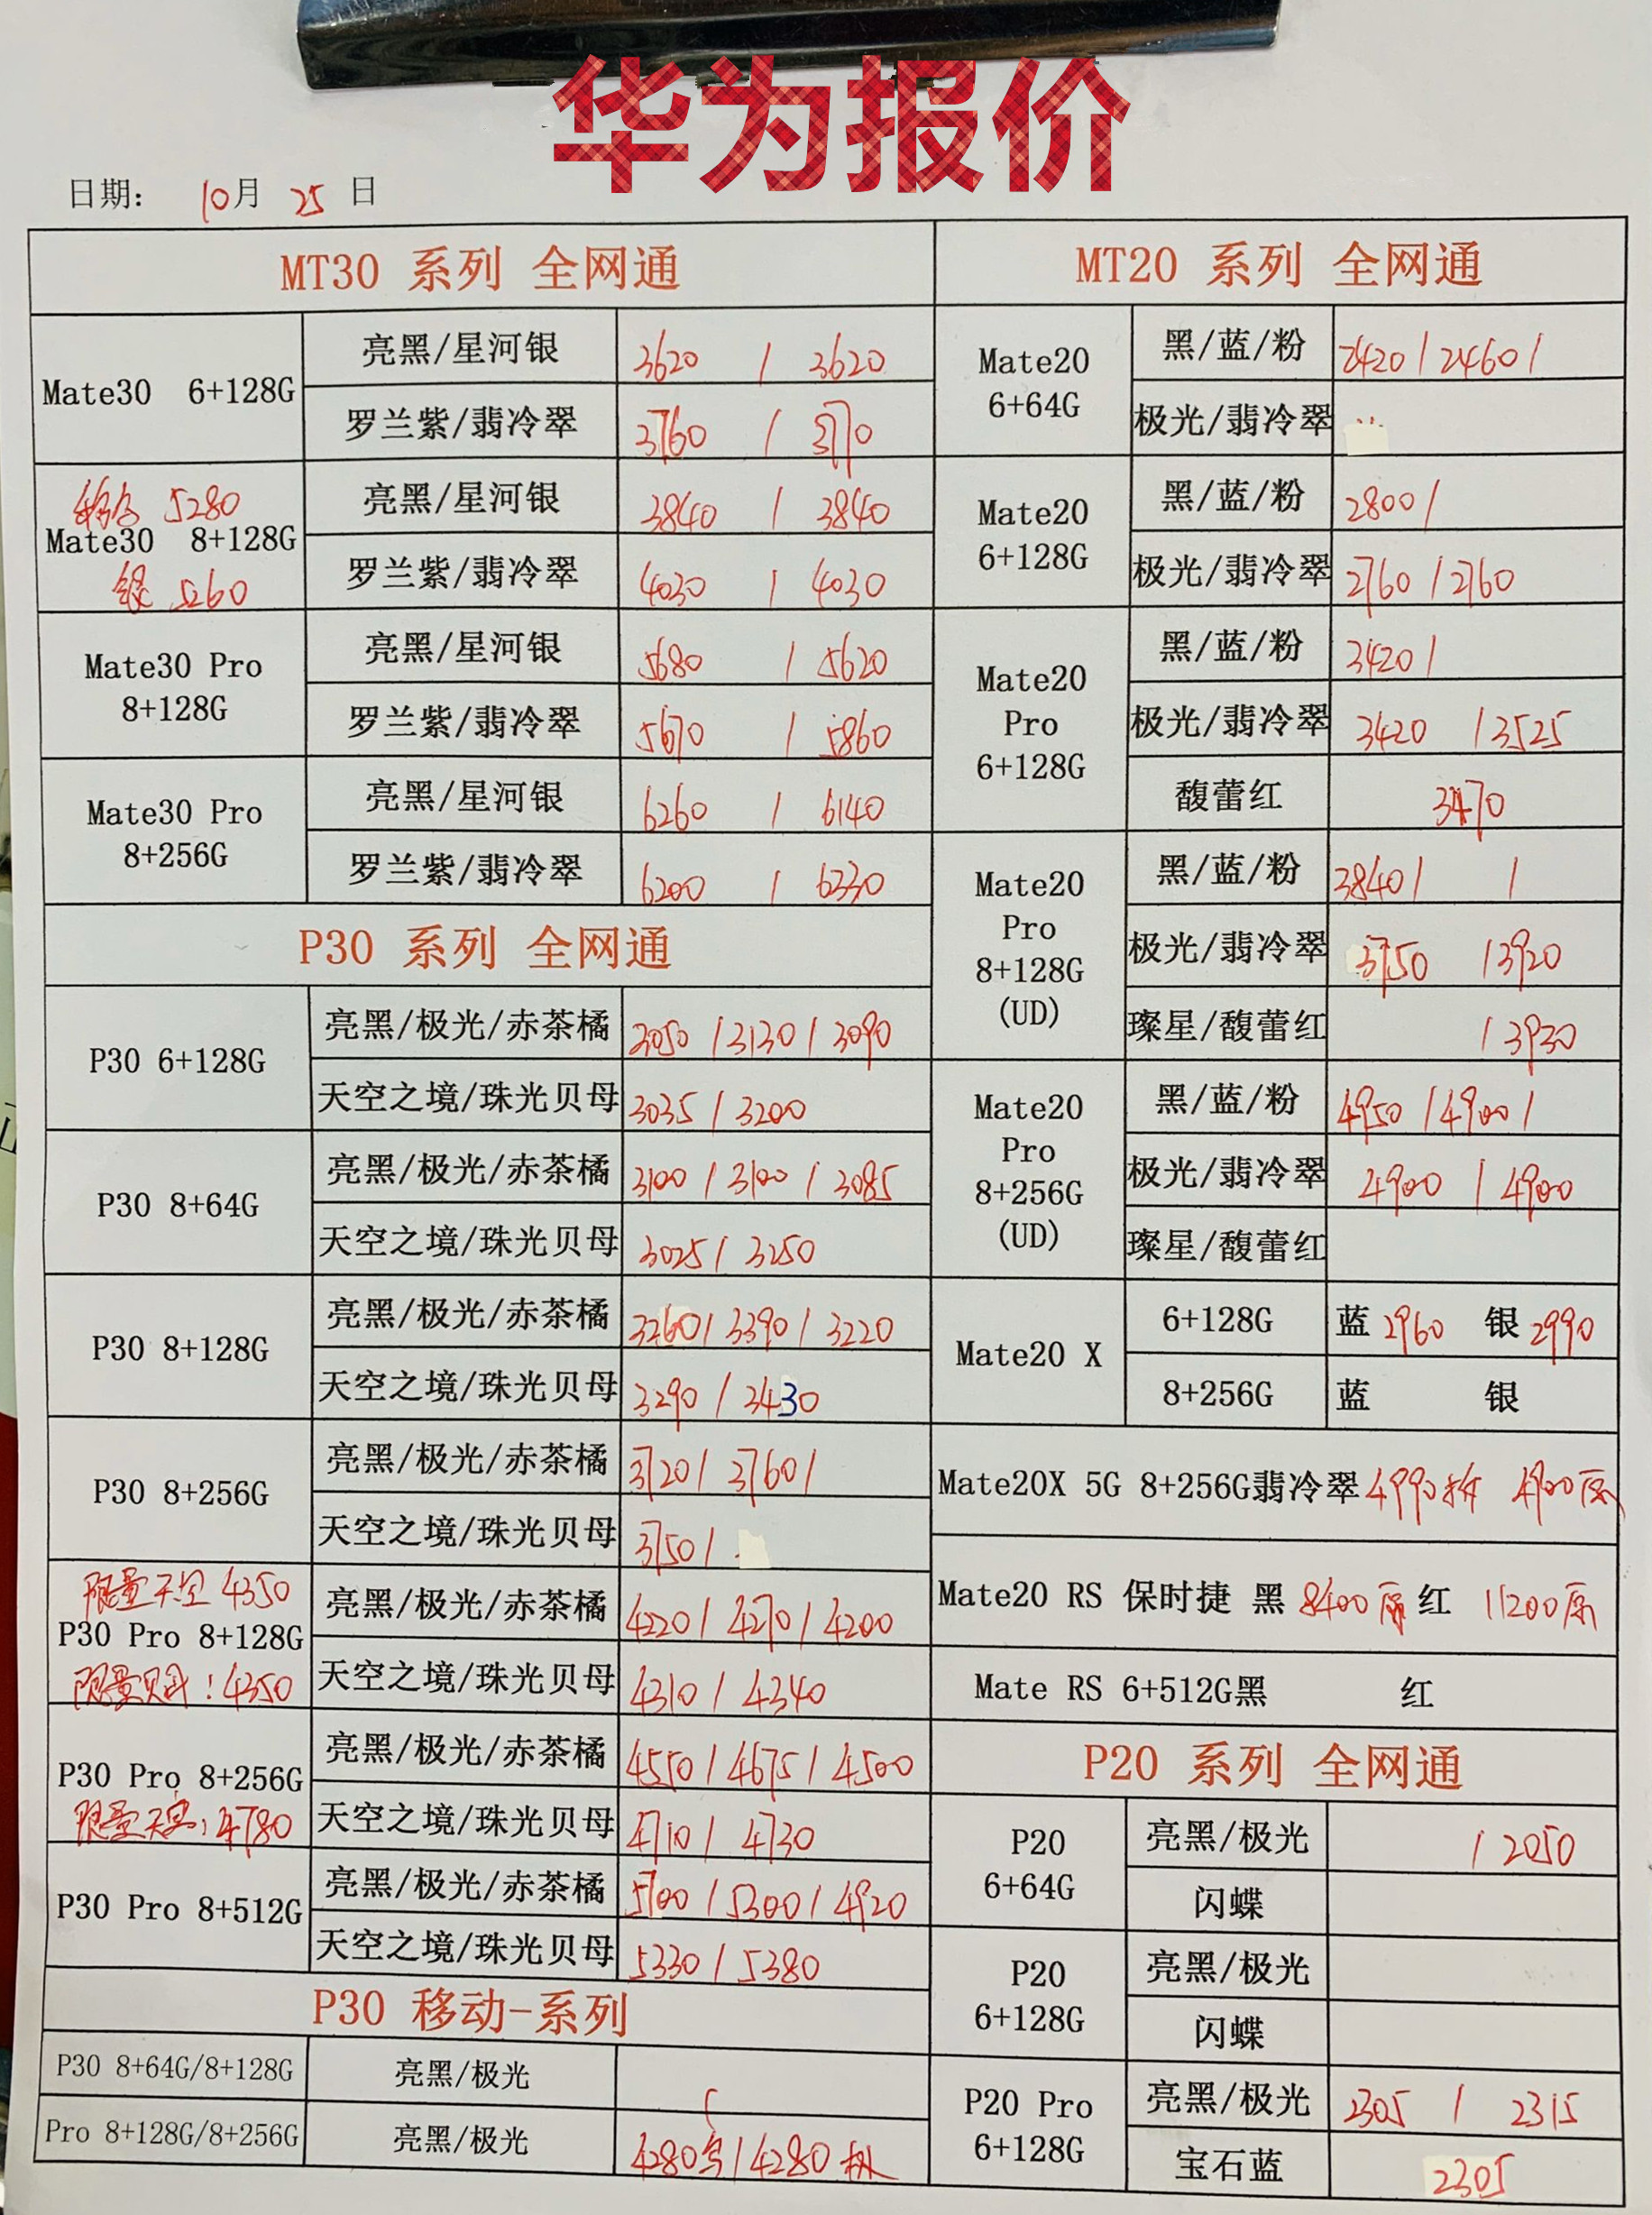 华为报价
日期： 10月 25 日
MT30 系列 全网通
Mate30 6+128G
亮黑/星河银 3620 / 3620
罗兰紫/翡冷翠 3760 /
5280
Mate30 8+128G
银 5260
亮黑/星河银 3840 / 3840
罗兰紫/翡冷翠 4030 / 4030
Mate30 Pro
8+128G
亮黑/星河银 5680 / 5620
罗兰紫/翡冷翠 5670 / 5860
Mate30 Pro
8+256G
亮黑/星河银 6260 / 6140
罗兰紫/翡冷翠 6200 / 6330
P30 系列 全网通
P30 6+128G
亮黑/极光/赤茶橘 3050 / 3130 / 3090
天空之境/珠光贝母 3035 / 3200
P30 8+64G
亮黑/极光/赤茶橘 3100 / 3100 / 3085
天空之境/珠光贝母 3025 / 3250
P30 8+128G
亮黑/极光/赤茶橘 3260 / 3390 / 3220
天空之境/珠光贝母 3290 / 3430
P30 8+256G
亮黑/极光/赤茶橘 3720 / 3760 /
天空之境/珠光贝母 3750 /
限量天空 4350
P30 Pro 8+128G
限量贝母：4350
亮黑/极光/赤茶橘 4220 / 4270 / 4200
天空之境/珠光贝母 4310 / 4340
P30 Pro 8+256G
限量天空：4780
亮黑/极光/赤茶橘 4550 / 4675 / 4500
天空之境/珠光贝母 4710 / 4730
P30 Pro 8+512G
亮黑/极光/赤茶橘 5100 / 5300 / 4920
天空之境/珠光贝母 5330 / 5380
P30 移动-系列
P30 8+64G/8+128G 亮黑/极光
Pro 8+128G/8+256G 亮黑/极光 4280 / 4280
MT20 系列 全网通
Mate20
6+64G
黑/蓝/粉 2420 / 2460 /
极光/翡冷翠
Mate20
6+128G
黑/蓝/粉 2800 /
极光/翡冷翠 2760 / 2760
Mate20
Pro
6+128G
黑/蓝/粉 3420 /
极光/翡冷翠 3420 / 3525
馥蕾红 3470
Mate20
Pro
8+128G
(UD)
黑/蓝/粉 3840 / /
极光/翡冷翠 3750 / 3920
璨星/馥蕾红 / 3930
Mate20
Pro
8+256G
(UD)
黑/蓝/粉 4950 / 4900 /
极光/翡冷翠 4900 / 4900
璨星/馥蕾红
Mate20 X
6+128G 蓝 2960 银 2990
8+256G 蓝 银
Mate20X 5G 8+256G翡冷翠 4990拆 4900原
Mate20 RS 保时捷 黑 8400原 红 11200原
Mate RS 6+512G黑 红
P20 系列 全网通
P20
6+64G
亮黑/极光 / 2050
闪蝶
P20
6+128G
亮黑/极光
闪蝶
P20 Pro
6+128G
亮黑/极光 2305 / 2315
宝石蓝 2305